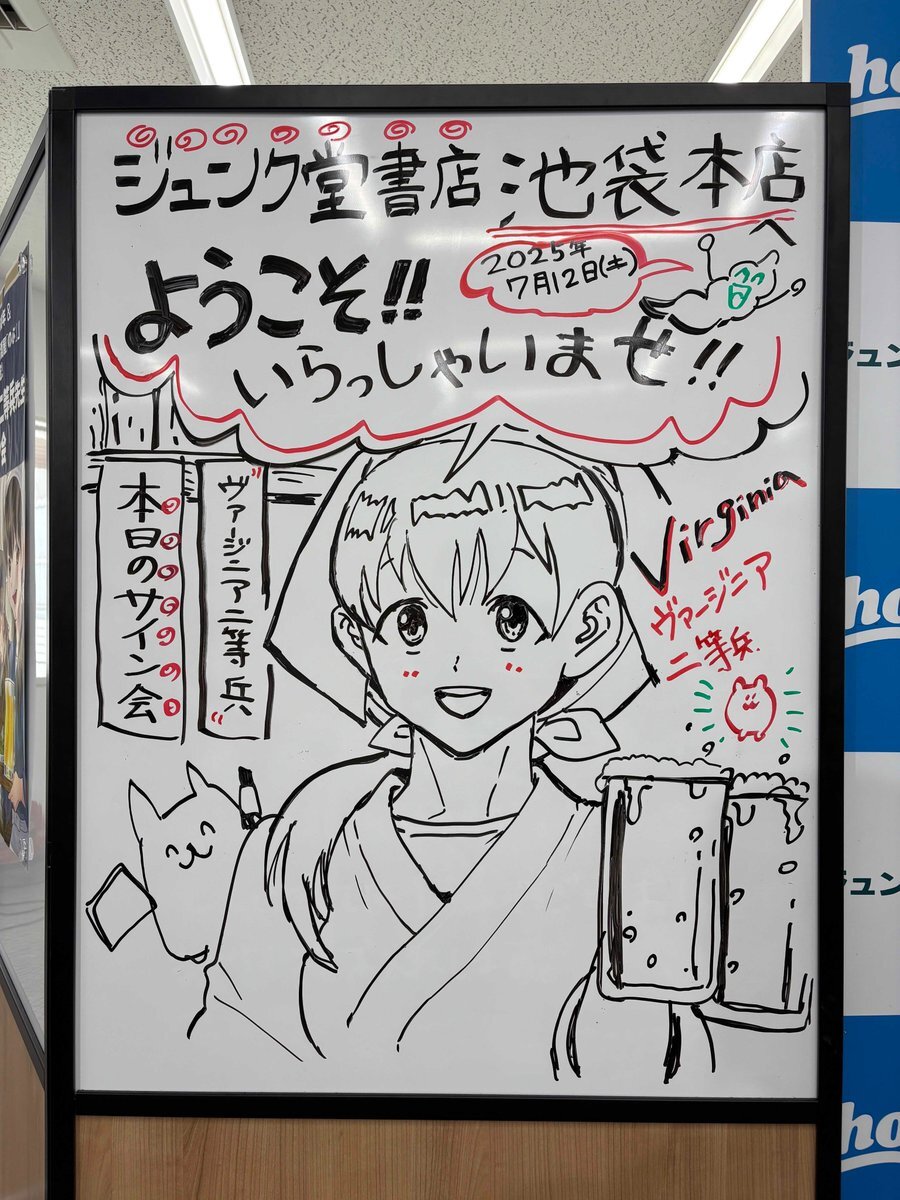 ジュンク堂書店 池袋本店
へ
2025年
7月12日(土)
ようこそ!!
いらっしゃいませ!!
ヴァージニア二等兵
本日のサイン会
Virginia
ヴァージニア
二等兵
ho
ジュン
ho
ジュン
ho
会